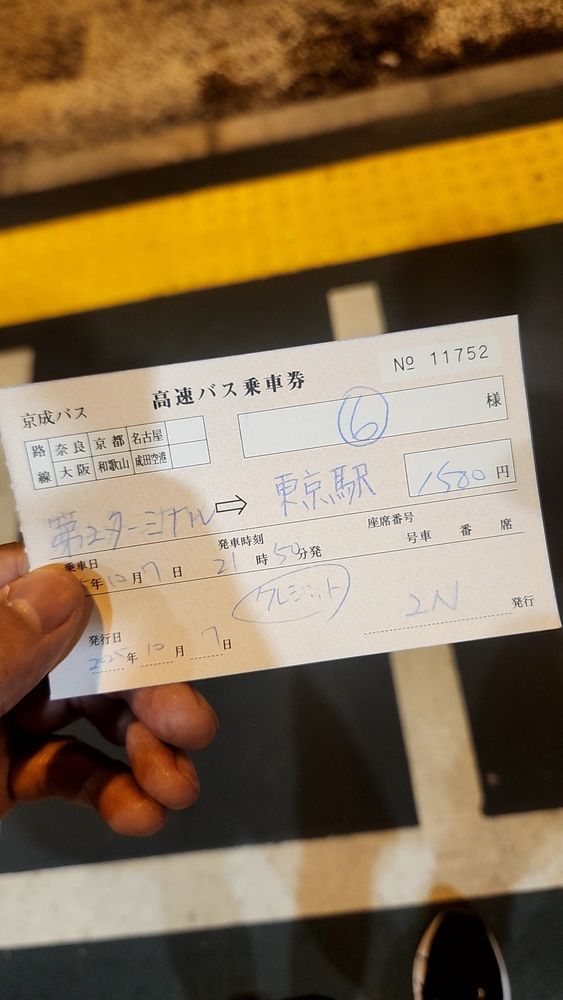 № 11752
京成バス 高速バス乗車券
路線 奈良 京都 名古屋
大阪 和歌山 成田空港
⑥ 様
第2ターミナル ⇨ 東京駅 1500円
乗車日 発車時刻 座席番号
年10月7日 21時50分発 号車 番 席
クレジット
2N 発行
発行日
2025年10月7日